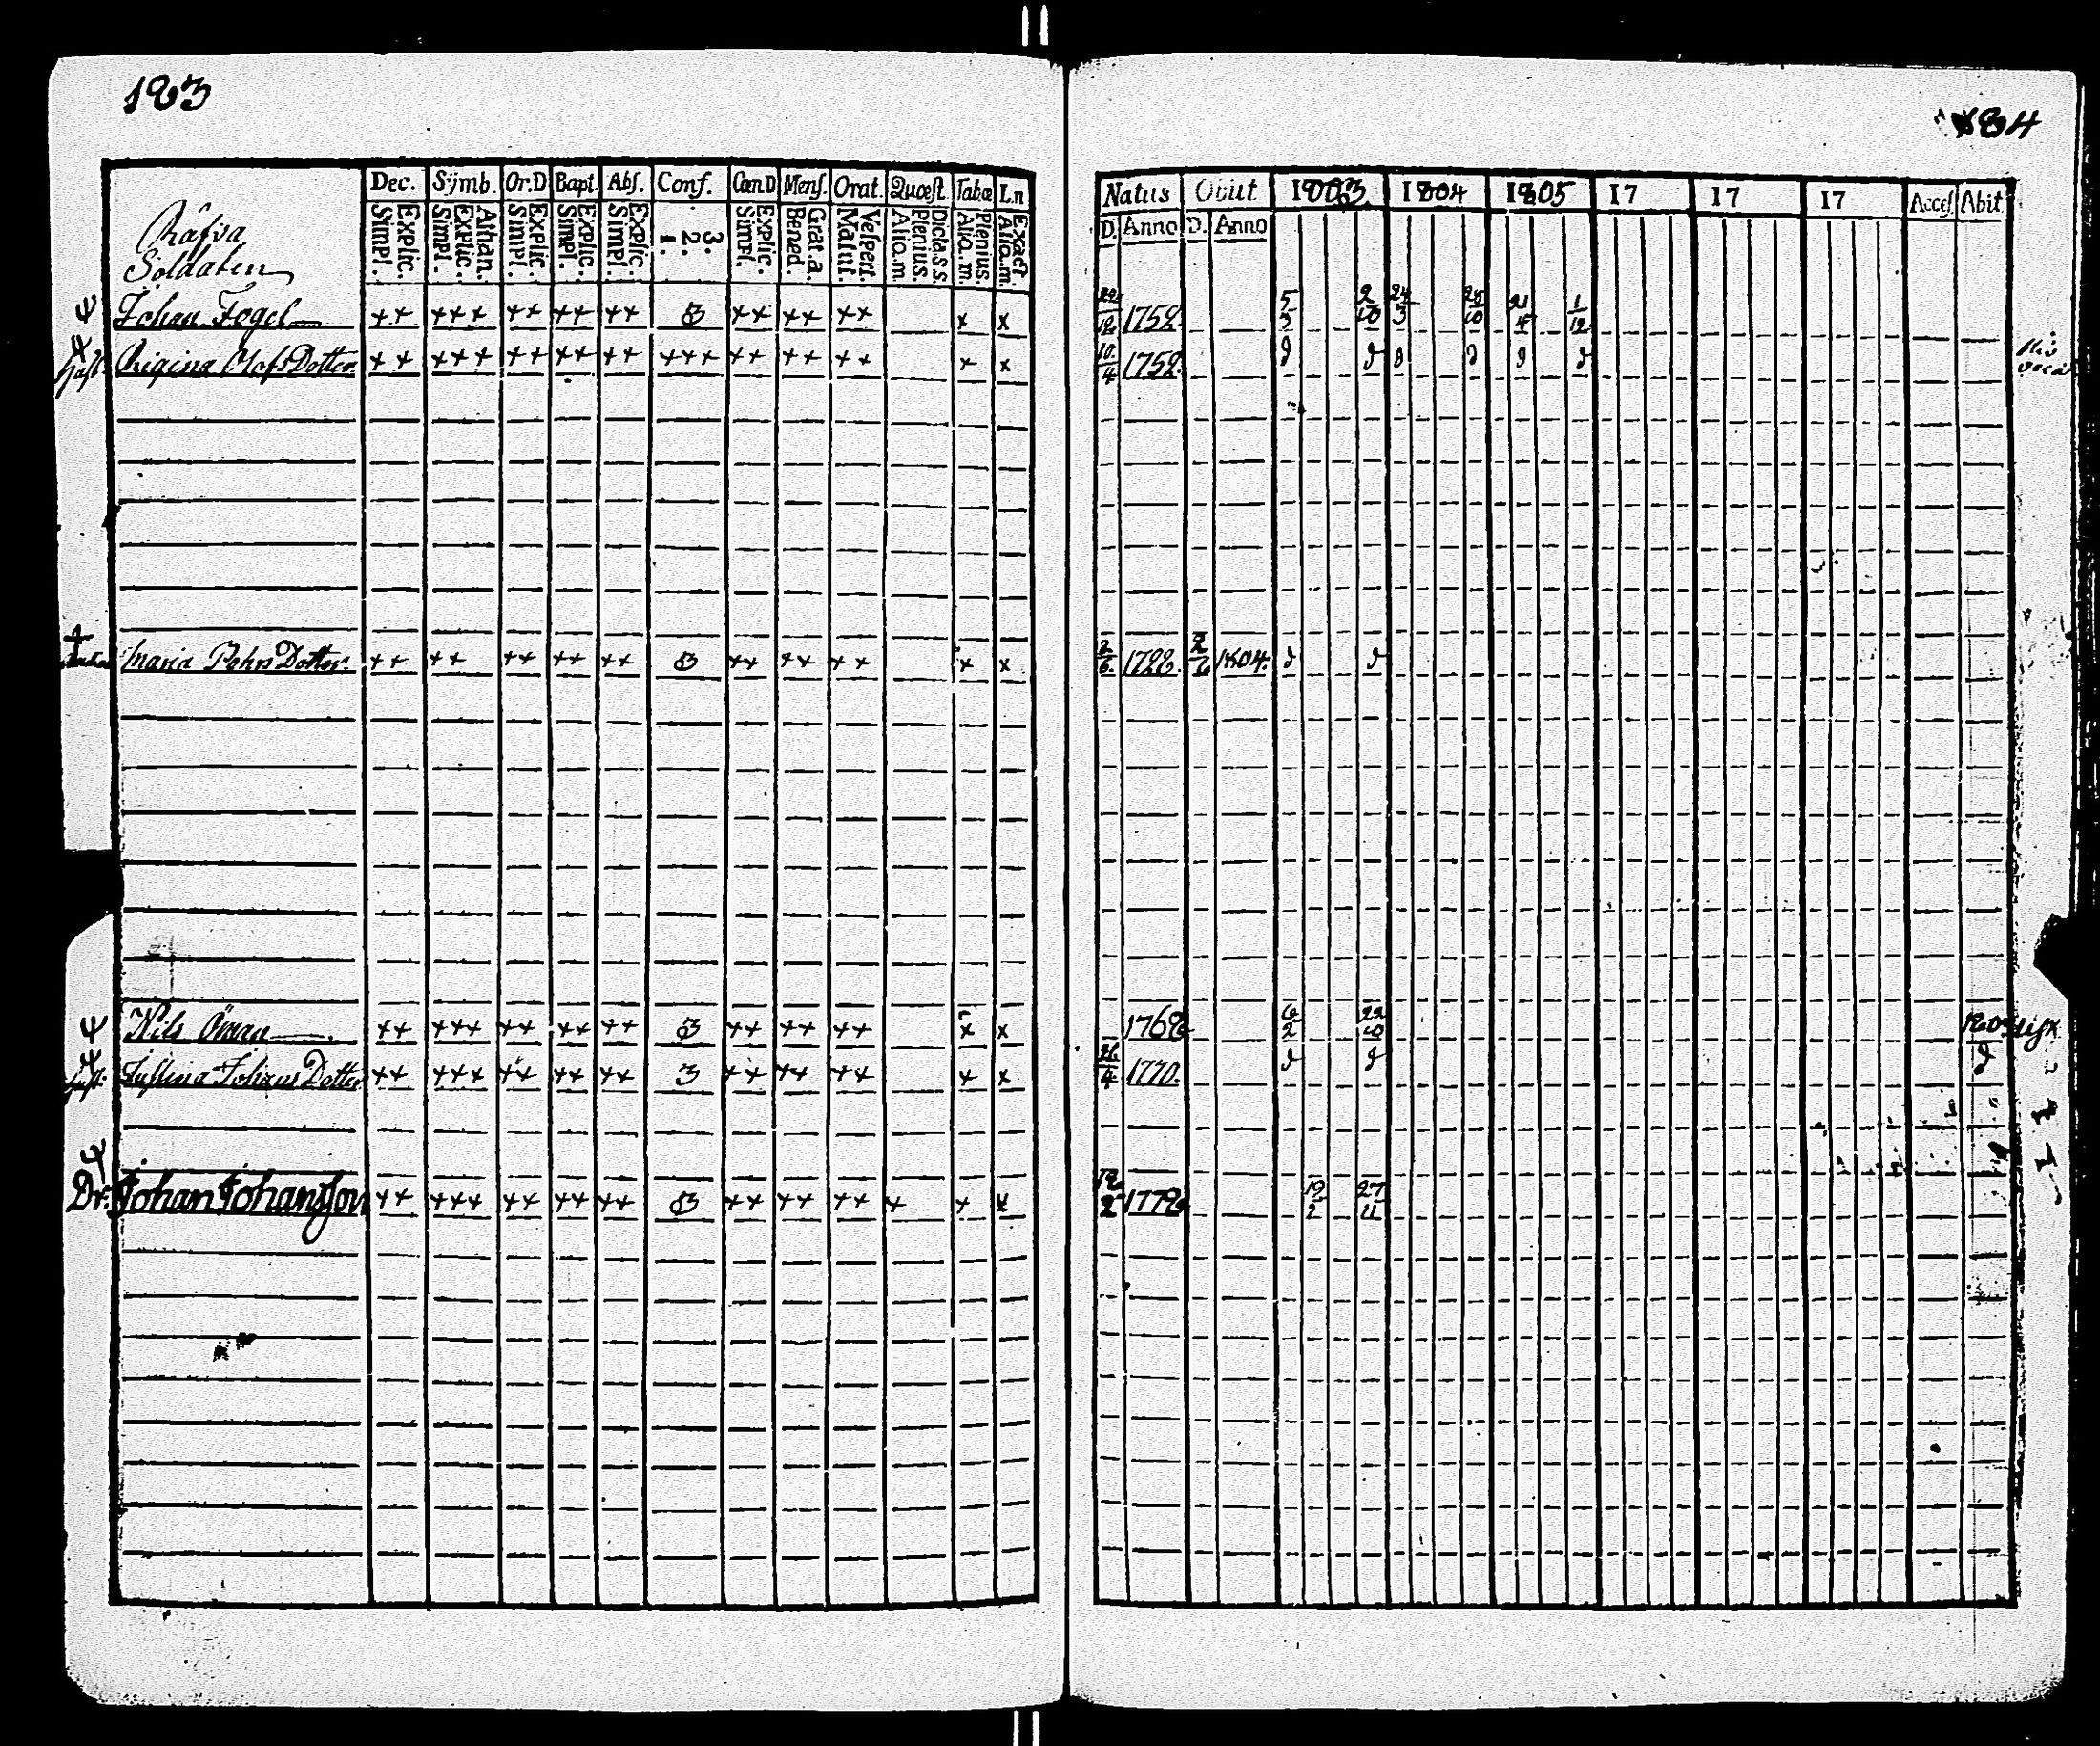 183
184
Dec. Sÿmb. Or.D Bapt. Abſ. Conf. Cœn.D Menſ. Orat. Quœſt. Tab.œ L.n
Explic. Simpl. Athan. Explic. Simpl. Explic. Simpl. Explic. Simpl. Explic. Simpl. 3. 2. 1. Explic. Simpl. Grat.a. Bened. Veſpert. Matut. Dicta.s.s. Plenius. Aliq.m Plenius. Aliq.m. Exact Aliq.m.
Natus Obiit 1803 1804 1805 17 17 17 Acceſ Abit
D. Anno D. Anno
Råfva
Soldaten
Johan Fogel ++ +++ ++ ++ ++ 3 ++ ++ ++ + x 1752. 5/3 2/10 24/3 28/10 21/4 1/12
Hust. Regina Olofs Dotter ++ +++ ++ ++ ++ +++ ++ ++ ++ + x 10/4 1752.
Maria Pehrs Dotter. ++ ++ ++ ++ ++ 3 ++ ++ ++ + x 2/6. 1728. 2/6 1804.
Nils Öman ++ +++ ++ ++ ++ 3 ++ ++ ++ + x 1768 6/2 22/10
Hust. Justina Johans Dotter ++ +++ ++ ++ ++ 3 ++ ++ ++ + x 26/4 1770.
Dr. Johan Johansson ++ +++ ++ ++ ++ 3 ++ ++ ++ + + x 12/2 1778 19/2 27/11